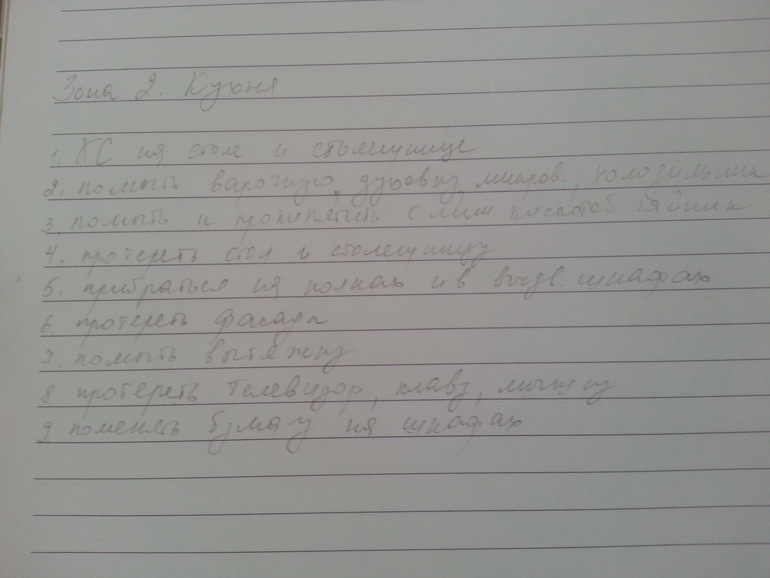 Зона 2. Кухня
1. ХС на столе и столешнице
2. помыть варочную, духовку, микров., холодильник
3. помыть и прокипятить с лим кислотой чайник
4. протереть стол и столешницу
5. прибраться на полках и в выдв. шкафах
6. протереть фасады
7. помыть вытяжку
8. протереть телевизор, клаву, мышку
9 поменять бумагу на шкафах